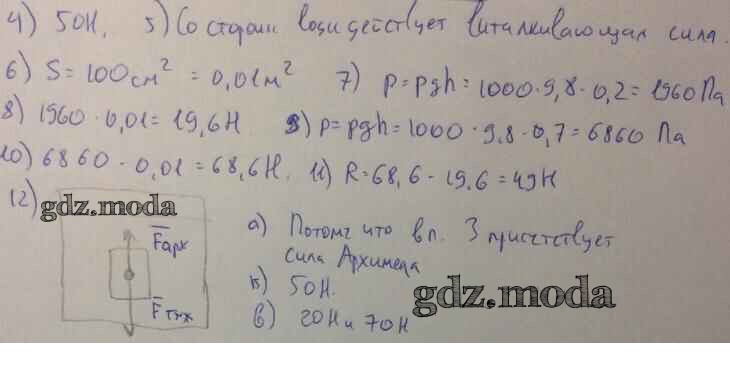 4) 50Н. 5) Со стороны воды действует выталкивающая сила.
6) S = 100см² = 0,01м² 7) p = ρgh = 1000·9,8·0,2 = 1960 Па
8) 1960·0,01 = 19,6Н 9) p = ρgh = 1000·9.8·0,7 = 6860 Па
10) 6860·0,01 = 68,6Н. 11) R = 68,6 - 19,6 = 49Н
12)
gdz.moda
Fарх
Fтяж
а) Потому что в п. 3 присутствует
сила Архимеда
б) 50Н.
в) 20Н и 70Н
gdz.moda